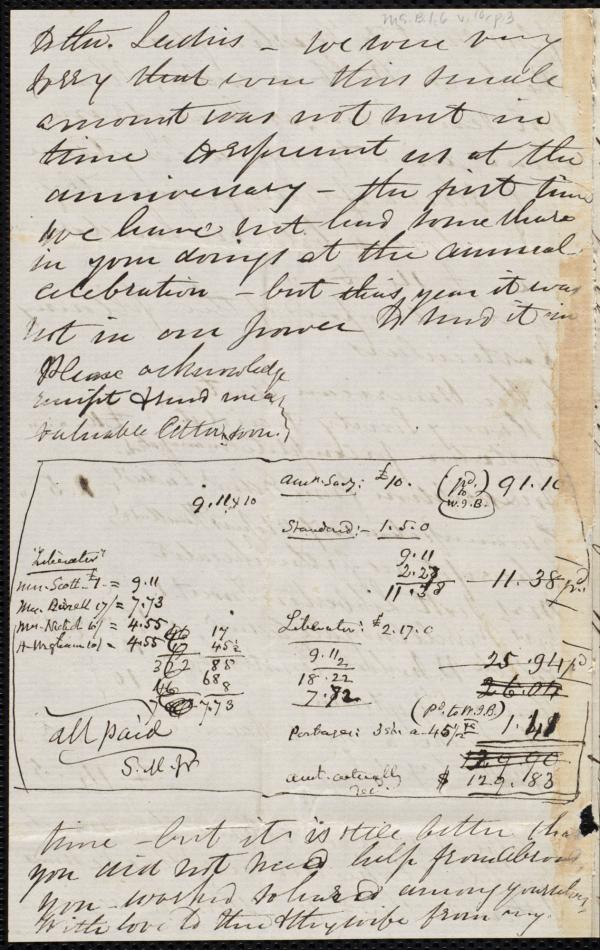 Ms. B.1.6 v.10, p.3
Ladies - we were very
sorry that even this small
amount was not sent in
time to represent us at the
anniversary - the first time
we have not had some share
in your doings at the annual
celebration - but this year it was
not in our power to send it in
Please acknowledge
receipt & send me a
valuable letter soon.
Am. A. Socy: £10. (pd. to W.I.B.) 91.10
9.11 x 10
Standard:- 1.5.0
9.11
2.28
11.38 — 11.38 pd.
"Liberator"
Mrs. Scott £1 = 9.11
Mrs. 17/ = 7.73
Mrs. 10/ = 4.55
H. Wigham 10/ = 4.55
17
45½
85
68
8
7.73
322
Liberator: £2.17.0
9.11
2
18.22
7.72
25.94 pd
26.04
(Pd. to W.I.B.)
Postages: 3sh. a 45½ 1.41
129.90
amt. actually rec. $ 129.83
all paid
S. M. Jr
time - but it is still better that
you did not need help from abroad
you worked so hard among yourselves
With love to thee & thy wife from my